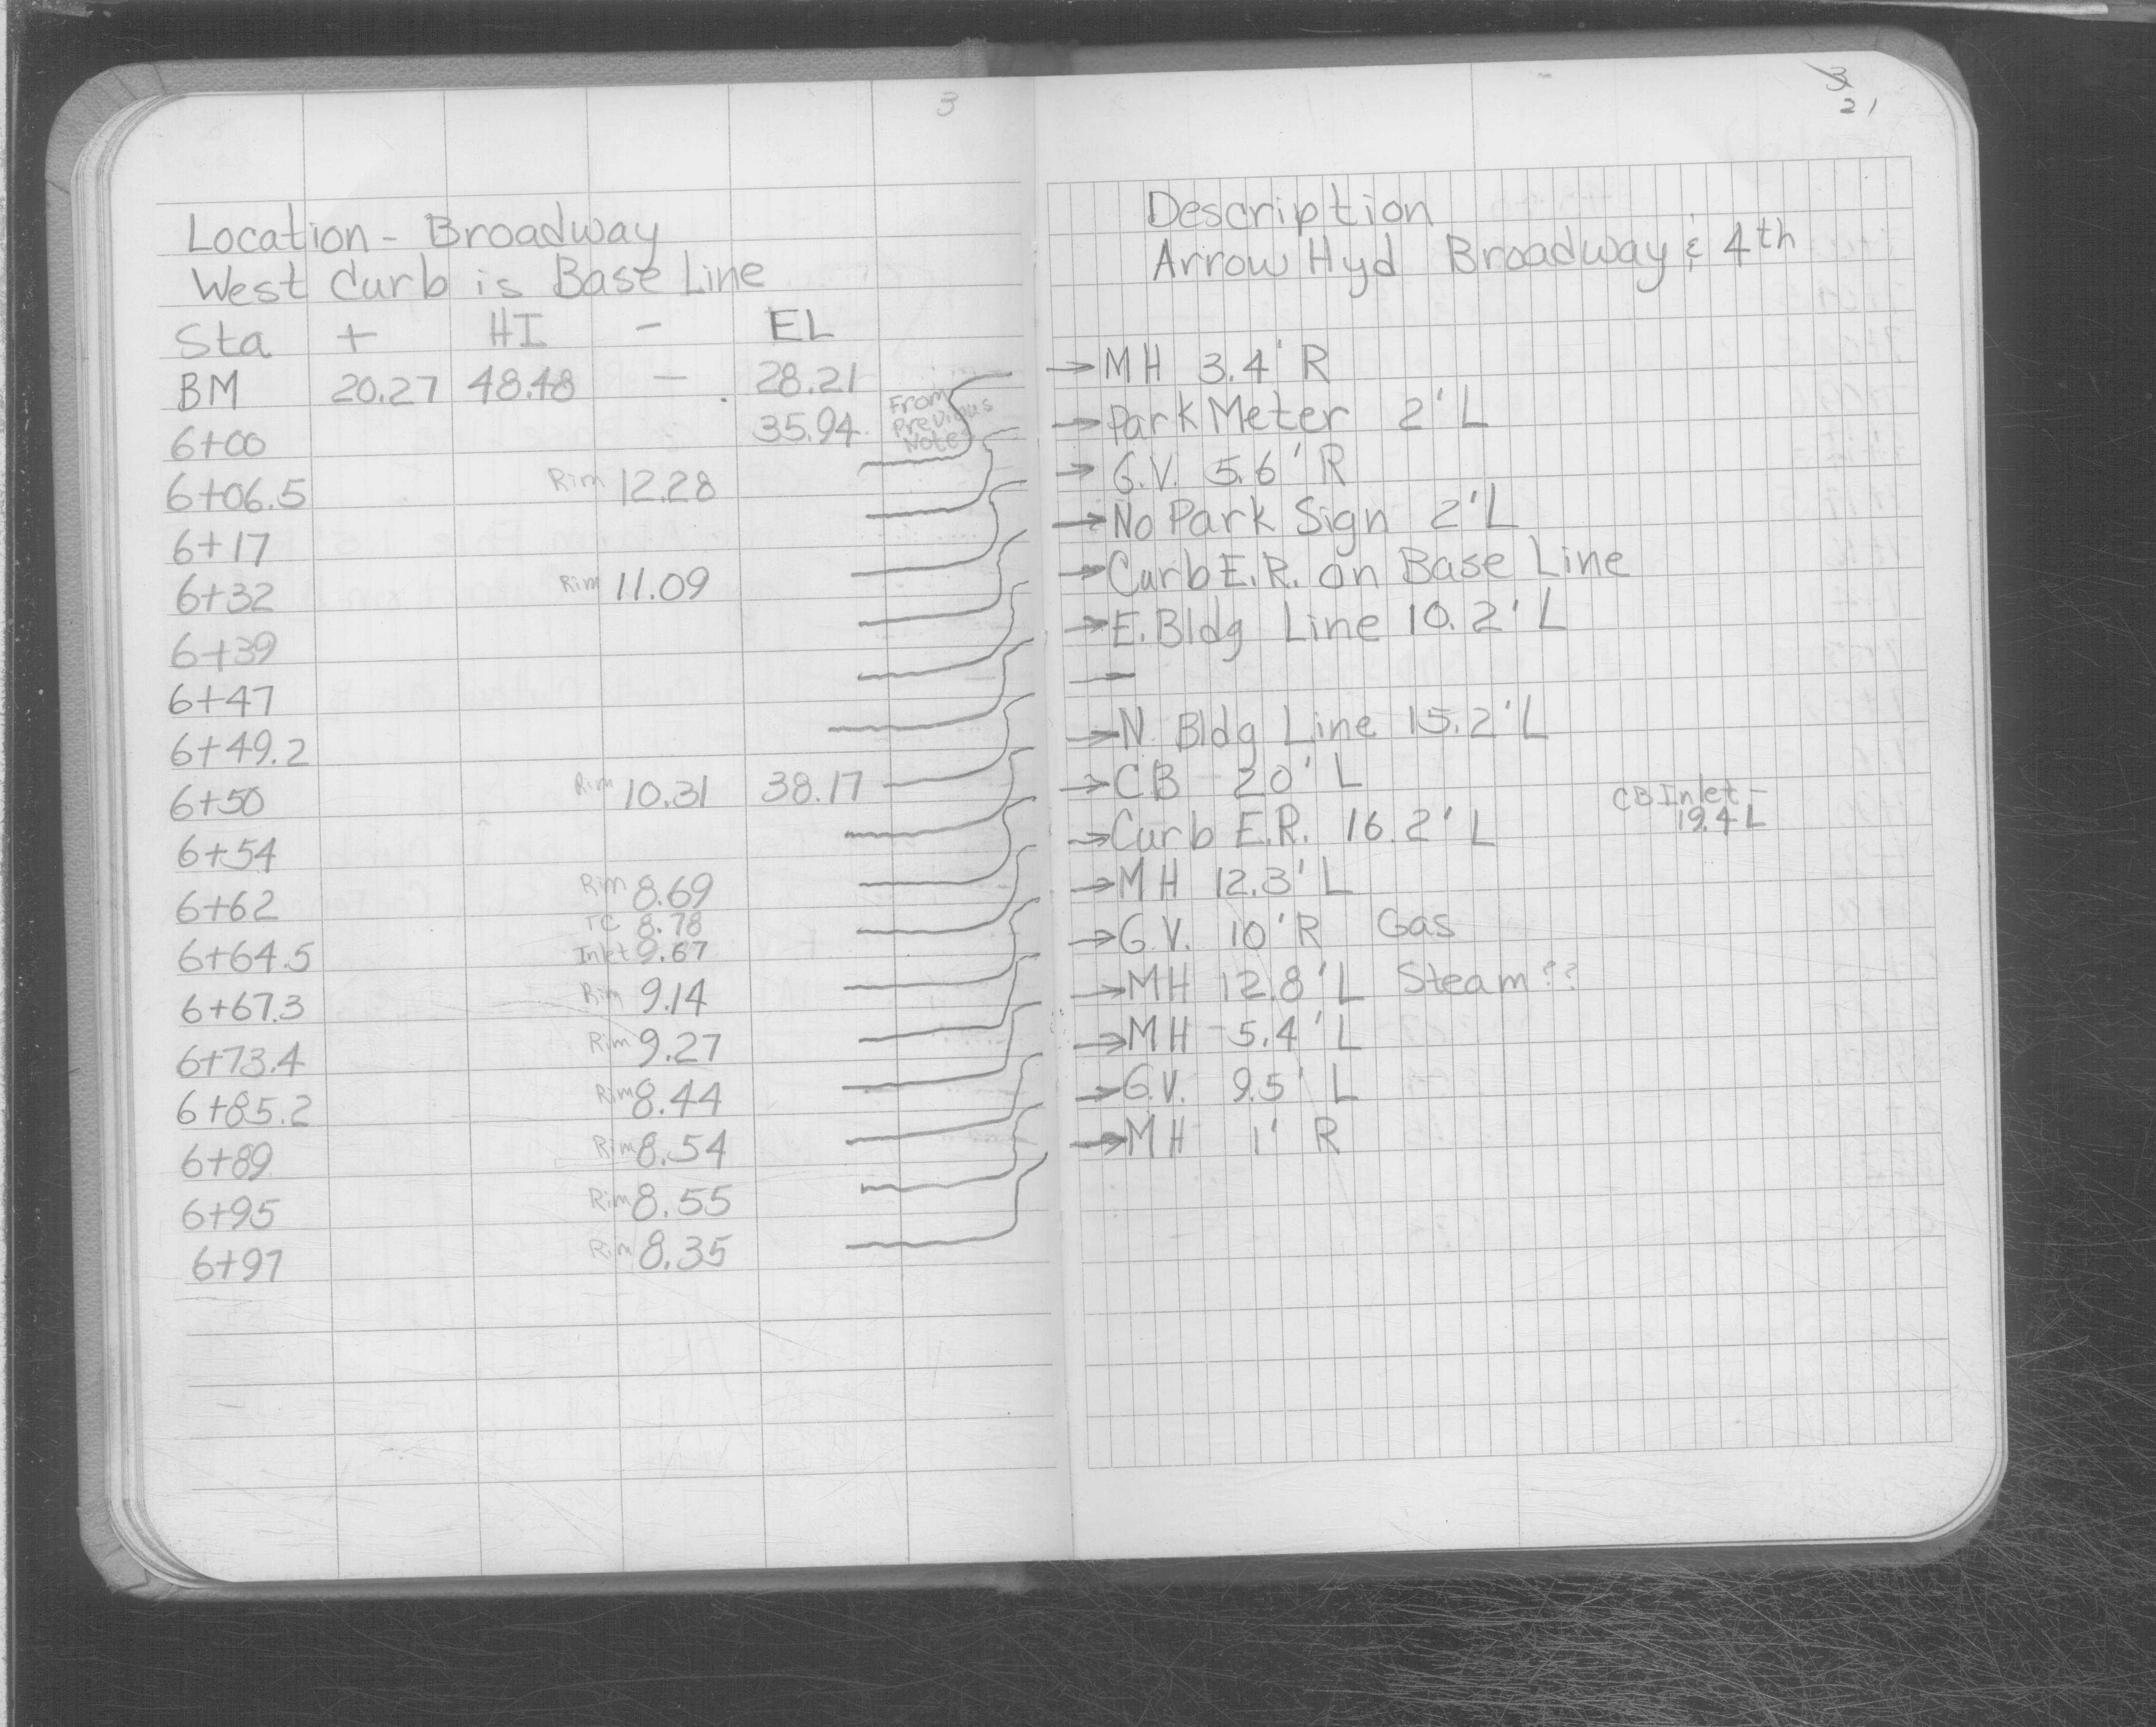 3
Location - Broadway
West Curb is Base Line
Sta + HI - EL
BM 20.27 48.48 - 28.21
6+00 35.94 From Previous Notes
6+06.5 Rim 12.28
6+17
6+32 Rim 11.09
6+39
6+47
6+49.2
6+50 Rim 10.31 38.17
6+54
6+62 Rim 8.69
TC 8.78
6+64.5 Inlet 9.67
6+67.3 Rim 9.14
6+73.4 Rim 9.27
6+85.2 Rim 8.44
6+89 Rim 8.54
6+95 Rim 8.55
6+97 Rim 8.35
3
21
Description
Arrow Hyd Broadway & 4th
→ MH 3.4' R
→ Park Meter 2' L
→ G.V. 5.6' R
→ No Park Sign 2' L
→ Curb E.R. on Base Line
→ E. Bldg Line 10.2' L
—
→ N. Bldg Line 15.2' L
→ CB 20' L
CB Inlet -
19.4 L
→ Curb E.R. 16.2' L
→ MH 12.3' L
→ G.V. 10' R Gas
→ MH 12.8' L Steam??
→ MH 5.4' L
→ G.V. 9.5' L
→ MH 1' R